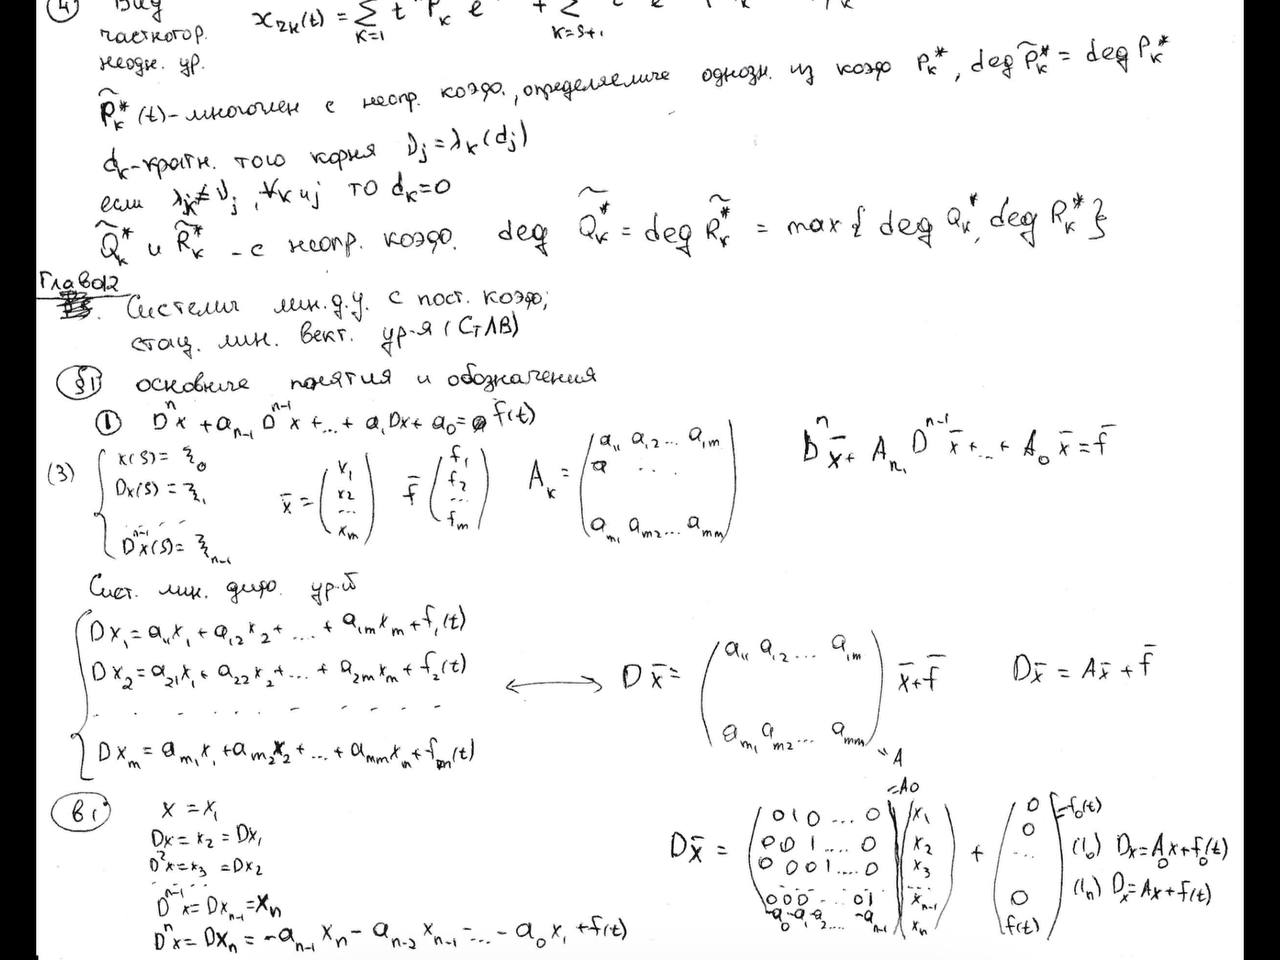 ④ Вид
частного р.
неодн. ур.
x₂ₖ(t) = Σ_{k=1} t Pₖ e + Σ_{k=s+1}
P̃ₖ*(t) - многочлен с неопр. коэфф., определяемые однозн. из коэф Pₖ*, deg P̃ₖ* = deg Pₖ*
dₖ - кратн. того корня νⱼ = λₖ (dⱼ)
если λₖ ≠ νⱼ, ∀k и j то dₖ = 0
Q̃ₖ* и R̃ₖ* - с неопр. коэфф. deg Q̃ₖ* = deg R̃ₖ* = max{deg Qₖ*, deg Rₖ*}
Глава 2
Системы лин. д.у. с пост. коэф;
стац. лин. вект. ур-я (СтЛВ)
§1 основные понятия и обозначения
① Dⁿx + aₙ₋₁Dⁿ⁻¹x + ... + a₁Dx + a₀ = f(t)
(3) { x(s) = ξ₀
Dx(s) = ξ₁
. . . . . .
Dⁿ⁻¹x(s) = ξₙ₋₁
x̄ = (x₁ x₂ ... xₘ) f̄ (f₁ f₂ ... fₘ) Aₖ = (a₁₁ a₁₂ ... a₁ₘ a . . . aₘ₁ aₘ₂ ... aₘₘ)
Dⁿx̄ + Aₙ₋₁Dⁿ⁻¹x̄ + ... + A₀x̄ = f̄
Сист. лин. дифф. ур-й
Dx₁ = a₁₁x₁ + a₁₂x₂ + ... + a₁ₘxₘ + f₁(t)
Dx₂ = a₂₁x₁ + a₂₂x₂ + ... + a₂ₘxₘ + f₂(t)
. . . . . . . . .
Dxₘ = aₘ₁x₁ + aₘ₂x₂ + ... + aₘₘxₙ + fₘ(t)
⟷ Dx̄ = (a₁₁ a₁₂ ... a₁ₘ aₘ₁ aₘ₂ ... aₘₘ) x̄ + f̄ Dx̄ = Ax̄ + f̄
"A
В 1°
x = x₁
Dx = x₂ = Dx₁
D²x = x₃ = Dx₂
. . . . . .
Dⁿ⁻¹x = Dxₙ₋₁ = xₙ
Dⁿx = Dxₙ = -aₙ₋₁xₙ - aₙ₋₂xₙ₋₁ - ... - a₀x₁ + f(t)
=A₀
Dx̄ = (0 1 0 .... 0
0 0 1 .... 0
0 0 0 1 .... 0
0 0 0 - .. 0 1
-a₀ -a₁ -a₂ .... -aₙ₋₁) (x₁ x₂ x₃ ... xₙ₋₁ xₙ) + (0 0 ... 0 f(t)) = f₀(t)
(1₀) Dx = A₀x + f₀(t)
(1ₙ) Dx = Ax + f(t)